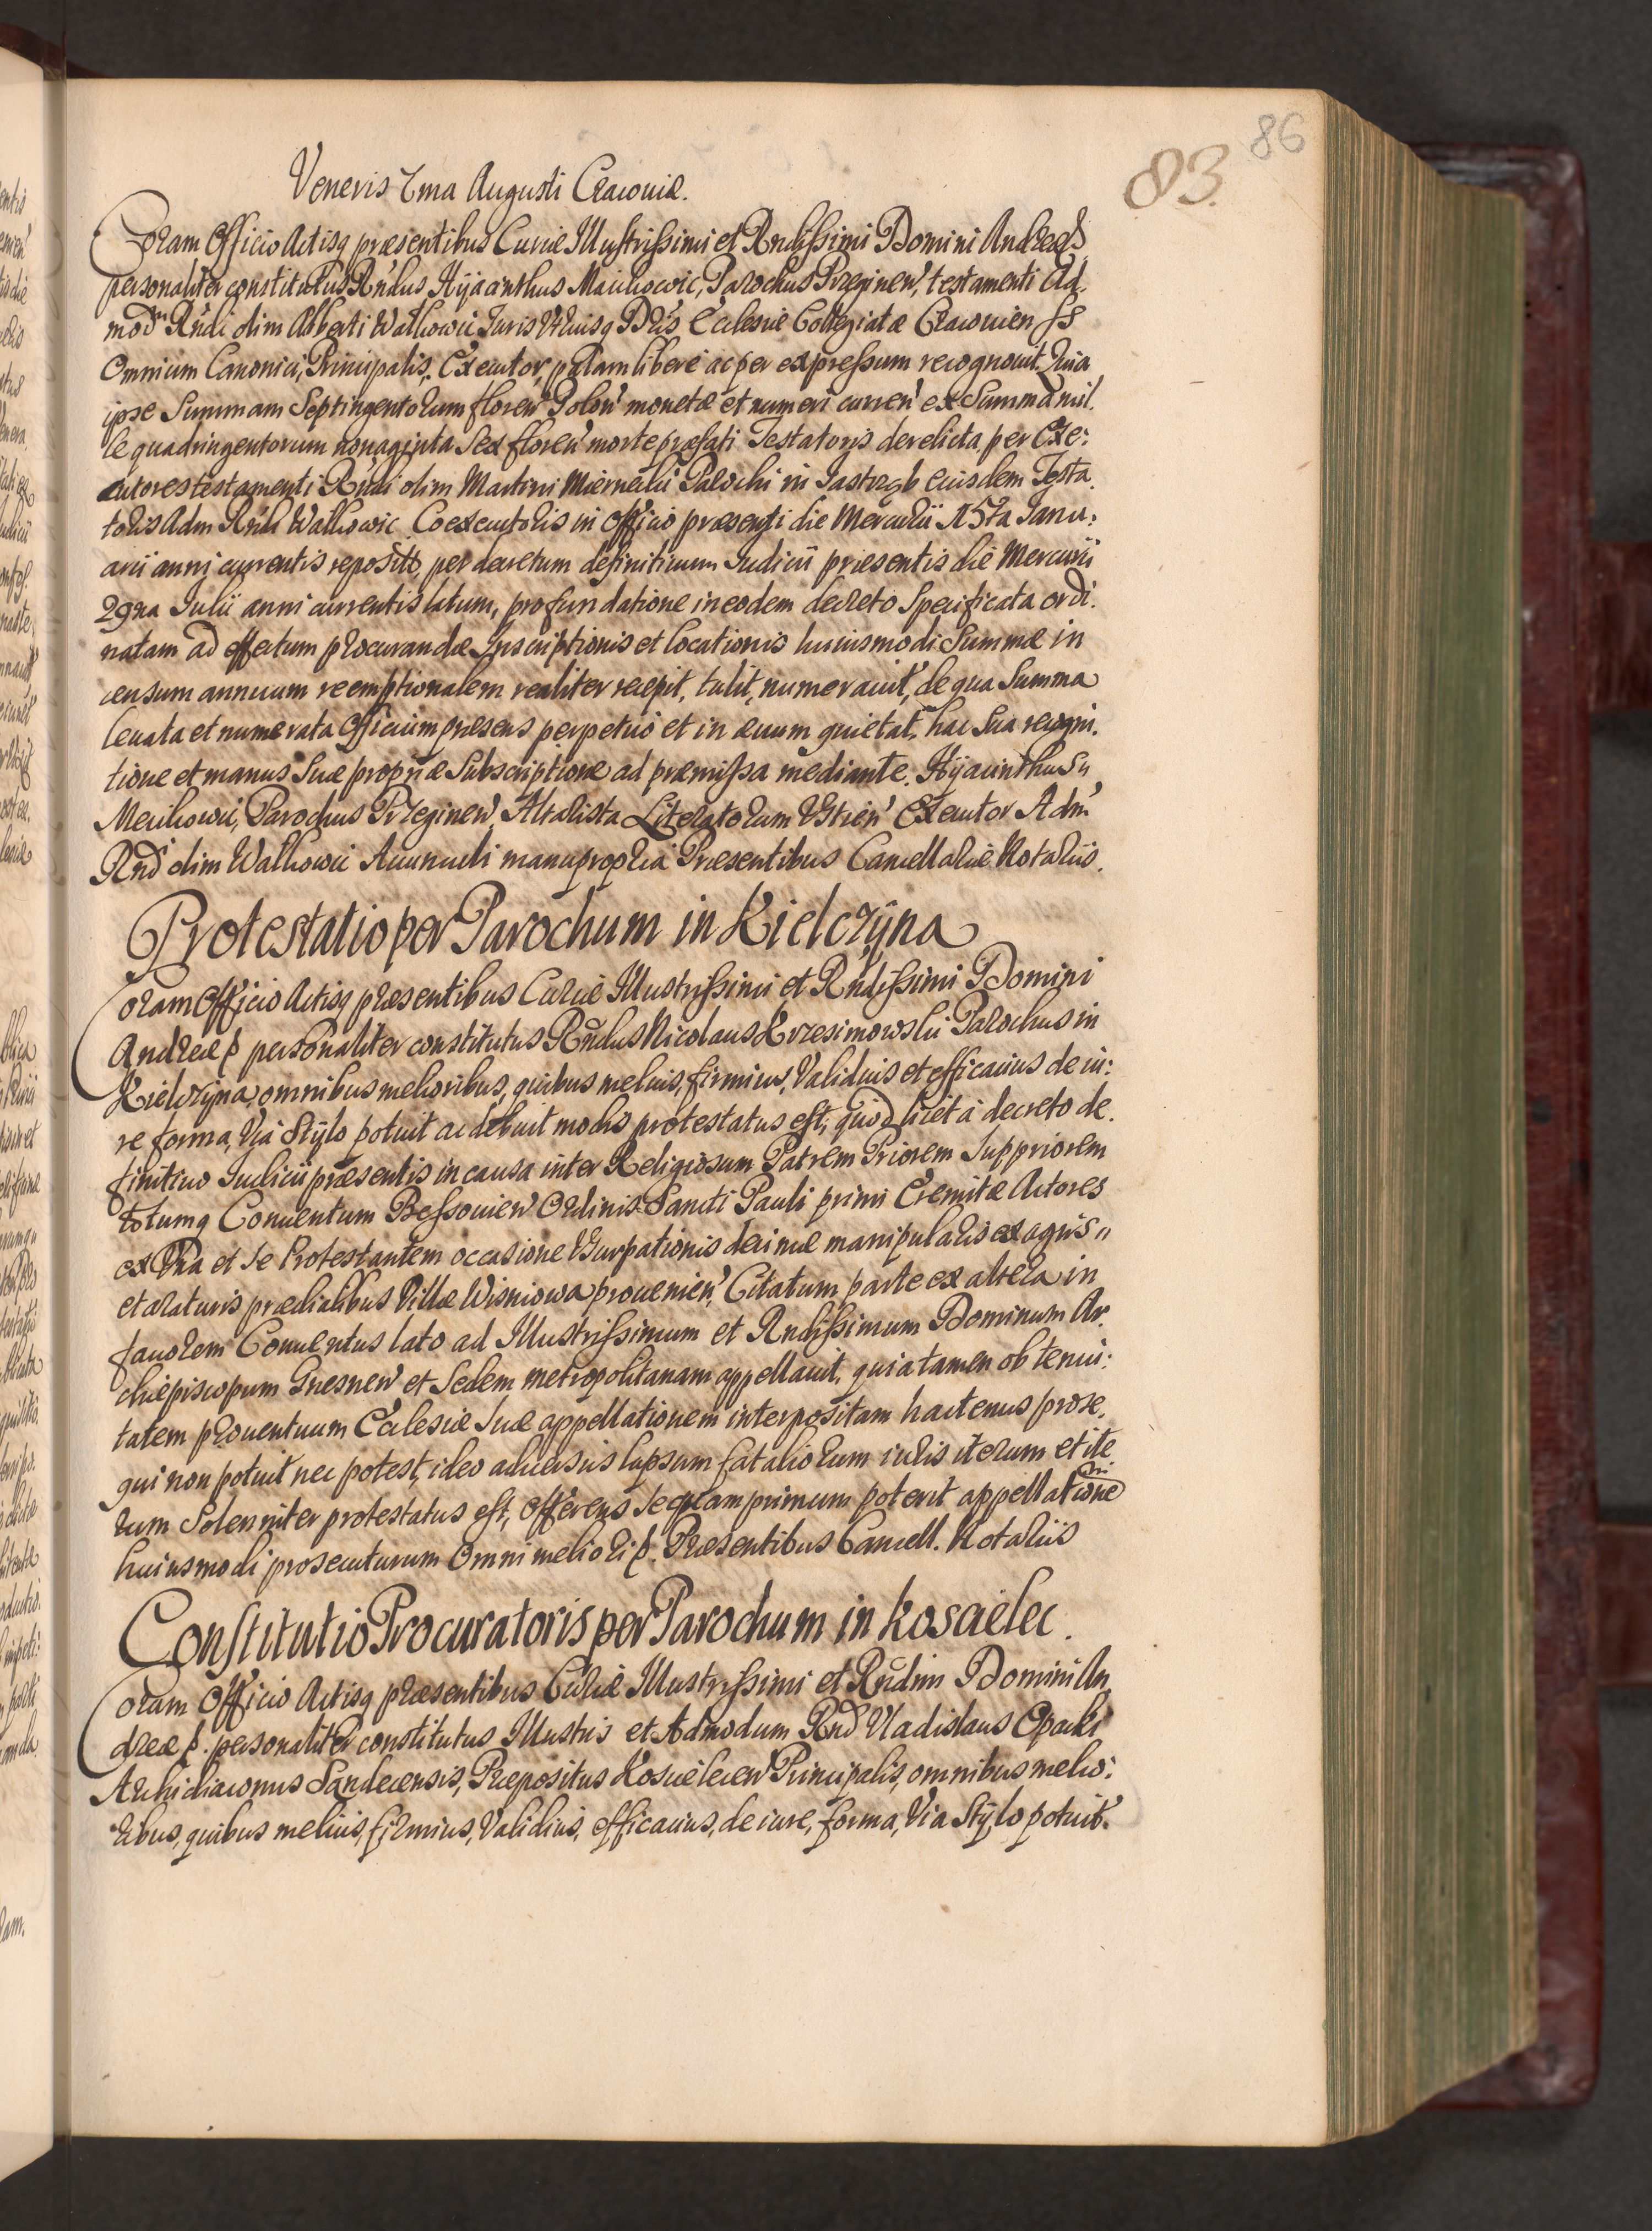 86
83.
Veneris 7ma Augusti Cracouiæ.
Coram Officio Actisq præsentibus Curiæ Illustrissimi et Rndissimi Domini Andreæ
personaliter constitutus Rndus Hijacinthus Maichowic, Parochus Przeginen, testamenti Ad.
modm Rndi olim Alberti Walkowic Juris Vtriusq Dris Ecclesiæ Collegiatæ Cracouien SS
Omnium Canonici, Principalis, Executor, palam libere ac per expressum recognouit. Quia
ipse Summam Septingentorum floren Polon monetæ et numeri curren ex Summa mil.
le quadringentorum nonaginta sex floren morte præfati Testatoris derelicta, per Exe:
cutores testamenti Rndi olim Martini Miernecki Parochi in Jastrząb eiusdem Testa.
toris Adm Rndi Walkowic Coexecutoris in Officio præsenti die Mercurii 15ta Janu:
arii anni currentis reposito, per decretum definitiuum Judicii præsentis die Mercurii
29na Julii anni currentis latum, pro fundatione in eodem decreto Specificata ordi.
natam ad effectum procurandæ Inscriptionis et locationis huiusmodi Summæ in
censum annuum reemptionalem realiter recepit, tulit, numerauit, de qua Summa
leuata et numerata Officium præsens perpetuo et in æuum quietat, hac Sua recogni.
tione et manus Suæ propriæ Subscriptione ad præmissa mediante. Hijacinthus
Meichowic, Parochus Przeginen, Altarista Literatorum Vstien Executor Adm
Rnd olim Walkowic Auunculi manu propria Præsentibus Cancellariæ Notariis.
Protestatio per Parochum in Kielczÿna
Coram Officio Actisq præsentibus Curiæ Illustrissimi et Rndissimi Domini
Andreæ p personaliter constitutus Rndus Nicolaus Krzesimowski Parochus in
Kielczÿna, omnibus melioribus, quibus melius, firmius, Validius et efficacius de iu:
re forma, Via Stÿlo potuit ac debuit modis protestatus est, quod licet a decreto de.
finitiuo Judicii præsentis in causa inter Religiosum Patrem Priorem Suppriorem
totumq Conuentum Bessouien Ordinis Sancti Pauli primi Eremitæ Actores
ex Vna et se Protestantem occasione Vsurpationis decimæ manipularis ex agris
et araturis prædialibus Villæ Wisniowa prouenien, Citatum parte ex altera in
fauorem Conuentus lato ad Illustrissimum et Rndissimum Dominum Ar.
chiepiscopum Gnesnen et Sedem metropolitanam appellauit, quia tamen ob tenui:
tatem prouentuum Ecclesiæ Suæ appellationem interpositam hactenus prose.
qui non potuit nec potest, ideo aduersus lapsum fataliorum iuris iterum et ite
rum Solenniter protestatus est, offerens se quam primum poterit appellationem
huiusmodi prosecuturum Omni meliori p. Præsentibus Cancell. Notariis
Constitutio Procuratoris per Parochum in koscielec.
Coram Officio Actisq præsentibus Curiæ Illustrissimi et Rndim Domini An
dreæ p. personaliter constitutus Illustris et Admodum Rnd Vladislaus Opacki
Archidiaconus Sandecensis, Præpositus Koscielecen Principalis, omnibus melio:
ribus, quibus melius, firmius, Validius, efficacius, de iure, forma, Via Stÿlo potuit